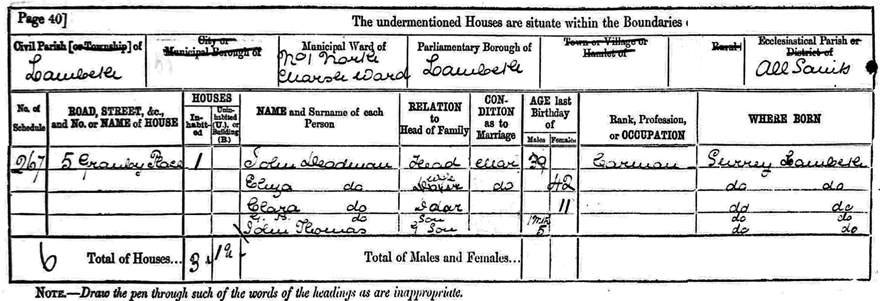 Page 40] The undermentioned Houses are situate within the Boundaries
Civil Parish [or Township] of City or Municipal Borough of Municipal Ward of Parliamentary Borough of Town or Village or Hamlet of Rural Ecclesiastical Parish or District of
Lambeth No 1 North Marsh Ward Lambeth All Saints
No. of Schedule ROAD, STREET, &c., and No. or NAME of HOUSE HOUSES In-habit-ed Unin-habited (U.), or Building (B.) NAME and Surname of each Person RELATION to Head of Family CON-DITION as to Marriage AGE last Birthday of Males Females Rank, Profession, or OCCUPATION WHERE BORN
267 5 Granby Place 1 John Deadman Head Mar 39 Carman Surrey Lambeth
Eliza do Wife do 42 do do
Clara do Daur 11 do do
do Son do do
John Thomas G Son 5 do do
6 Total of Houses... 3 Total of Males and Females...
NOTE.—Draw the pen through such of the words of the headings as are inappropriate.